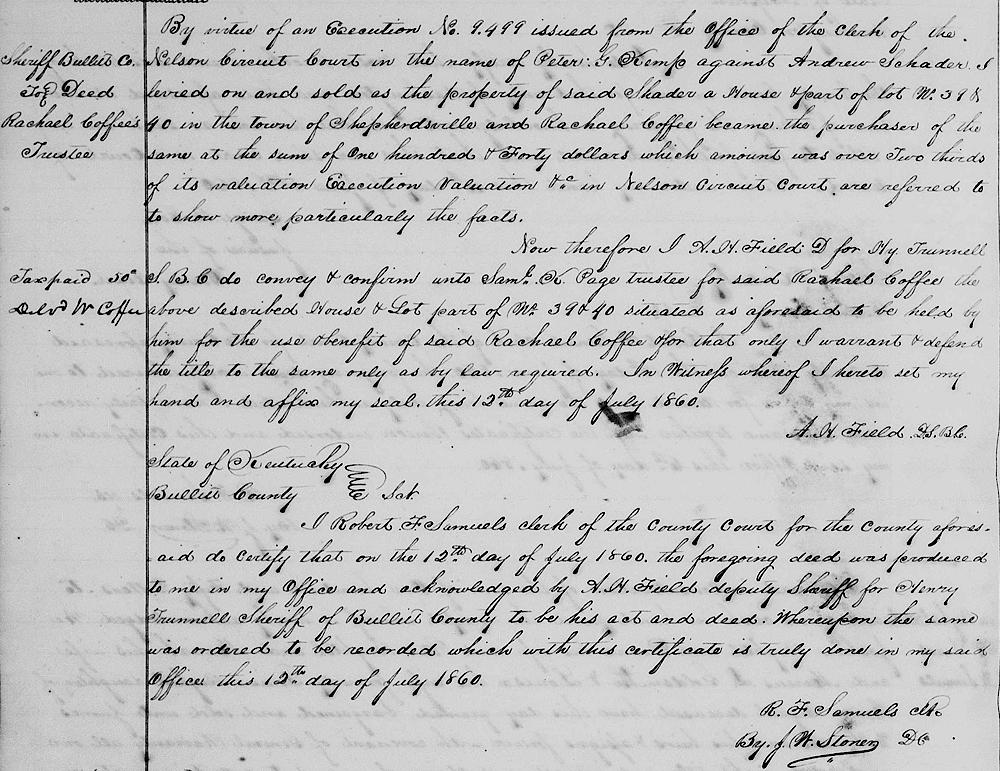 By virtue of an Execution No. 9.499 issued from the Office of the Clerk of the
Sheriff Bullitt Co.
To } Deed
Rachael Coffee's
Trustee
Nelson Circuit Court in the name of Peter G. Kemp against Andrew Schader. I
levied on and sold as the property of said Shader a House & part of lot No. 39 &
40 in the town of Shepherdsville and Rachael Coffee became the purchaser of the
same at the sum of One hundred & Forty dollars which amount was over Two thirds
of its valuation Execution Valuation &c in Nelson Circuit Court are referred to
to show more particularly the facts.
Now therefore I A. H. Field D for Hy. Trunnell
Tax paid 50c
Delvd W Coffee
S. B. C do convey & confirm unto Saml. K Page trustee for said Rachael Coffee the
above described House & Lot part of No. 39 & 40 situated as aforesaid to be held by
him for the use & benefit of said Rachael Coffee & for that only I warrant & defend
the title to the same only as by law required. In Witness whereof I hereto set my
hand and affix my seal. this 12th day of July 1860.
A. H. Field D.S.B.C.
State of Kentucky
Bullitt County Sct
I Robert F. Samuels clerk of the County Court for the County afores-
aid do certify that on the 12th day of July 1860. the foregoing deed was produced
to me in my Office and acknowledged by A. H. Field deputy Sheriff for Henry
Trunnell Sheriff of Bullitt County to be his act and deed. Whereupon the same
was ordered to be recorded which with this certificate is truly done in my said
Office this 12th day of July 1860.
R. F. Samuels Clk
By. J. W. Stoner DC